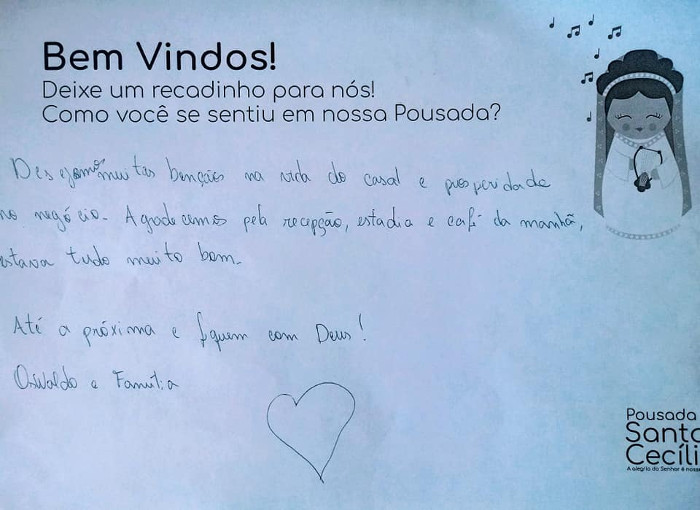 Bem Vindos!
Deixe um recadinho para nós!
Como você se sentiu em nossa Pousada?
Desejamos muitas benções na vida do casal e prosperidade
no negócio. Agradecemos pela recepção, estadia e café da manhã,
estava tudo muito bom.
Até a próxima e fiquem com Deus!
Oswaldo e Família
Pousada
Santa
Cecíli
A alegria do Senhor é nossa